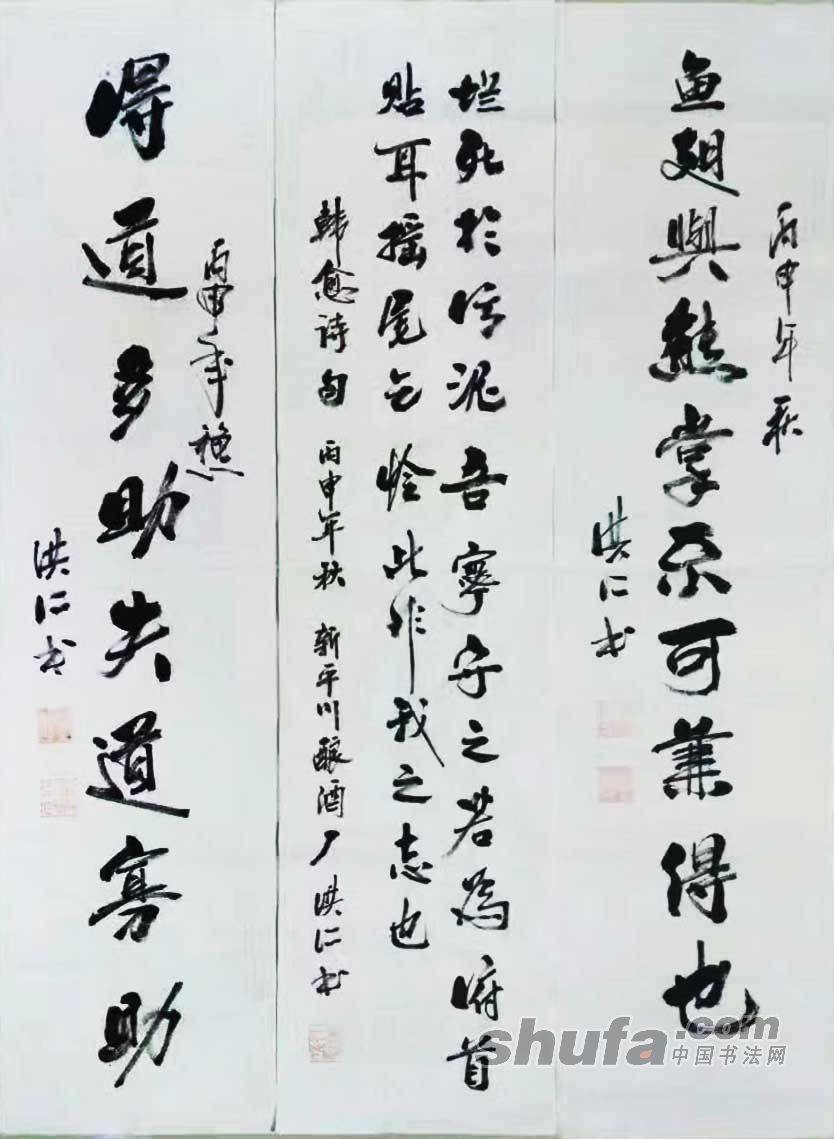 丙申年秋
鱼翅與熊掌不可兼得也
洪仁书
烂死於污泥吾寧安之若為俯首
贴耳摇尾乞怜此非我之志也
韩愈诗句 丙申年秋 新平川酿酒厂 洪仁书
丙申年穐
得道多助失道寡助
洪仁书
shufa.com
中国书法网